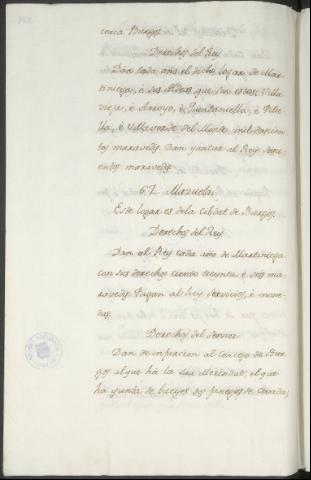 cerca Burgos.
Derechos del Rey
Dan cada año el dicho logar de Mar-
tiniega, è sus Aldeas, que son estas, Villa
vieja, è Arroyo, è Quintaniella, è Peliе
lla, è Villaverde del Monte, mil docien
tos maravedis. Dan yantar al Rey seis
cientos maravedis.
67 Mazuelu
Este logar es dela Cibdat de Burgos.
Derechos del Rey
Dan el Rey cada año de Martiniega
con sus derechos ciento treynta è seis ma
ravedis. Pagan al Rey servicios, è mone-
das.
Derechos del Señor
Dan de infurcion al concejo de Bur
gos alque hà la sua Merindat, el que
hà yunta de bueyes dos fanegas de Cevada,